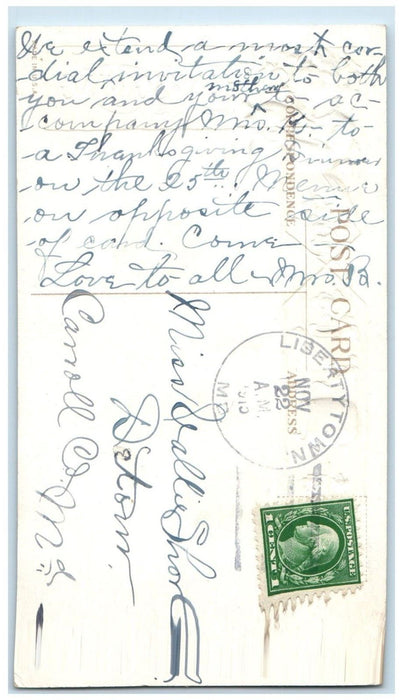 We extend a most cor-
dial invitation to both
you and your mother ac-
company Mrs. to
a Thanksgiving Dinner
on the 25th. Menu
on opposite side
of card. Come
Love to all - Mrs. B.
POST CARD
CORRESPONDENCE
ADDRESS
LIBERTYTOWN
NOV
22
A.M.
MD
U.S. POSTAGE
1 CENT 1
Miss Sallie Short
Detour
Carroll Co. Md.